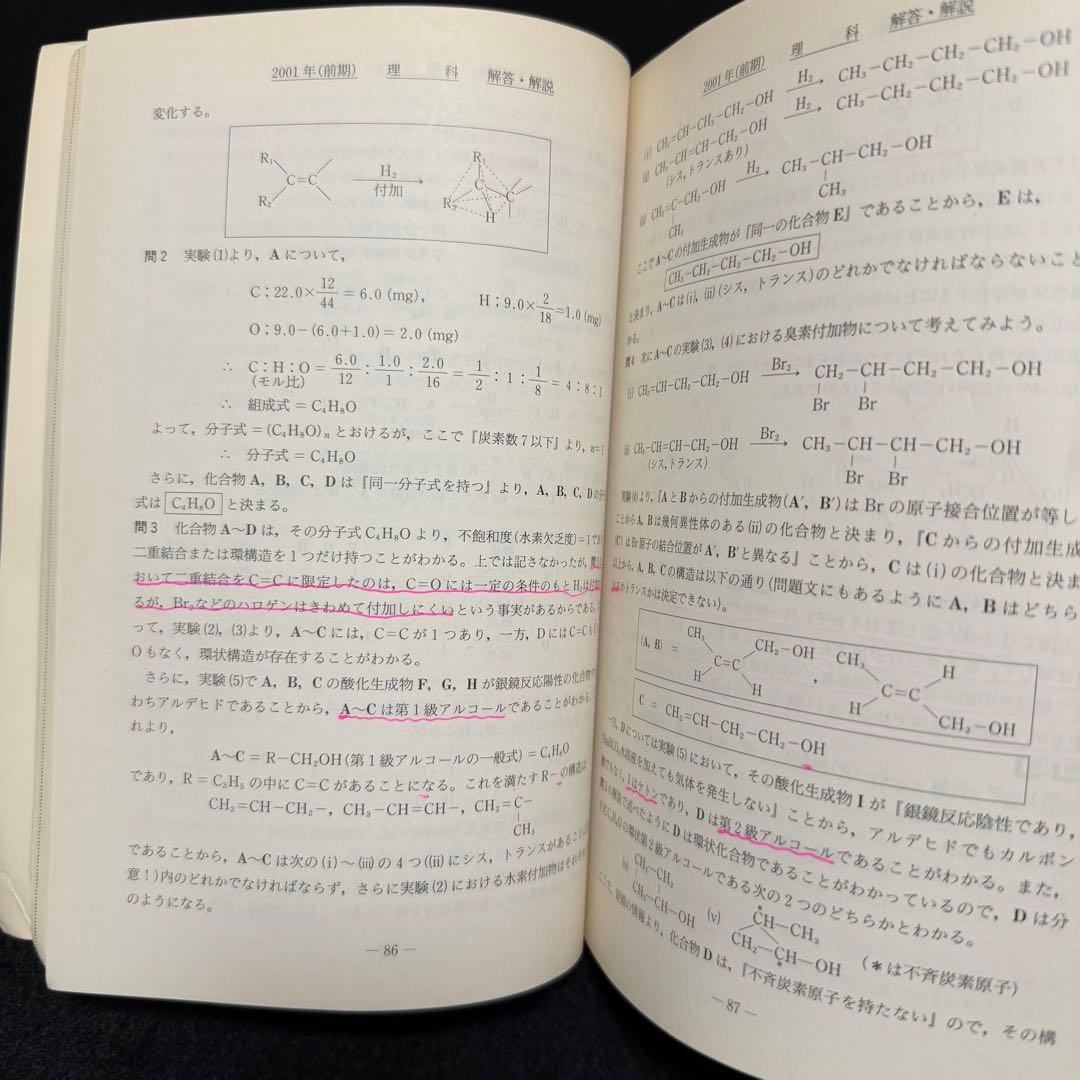 2001年(前期) 理 科 解答・解説
変化する。
R₁ R₂ C=C H₂ 付加 R₁ R₂ C C H
問2 実験(1)より，Aについて，
C；22.0×12/44＝6.0(mg)， H；9.0×2/18＝1.0(mg)
O；9.0－(6.0＋1.0)＝2.0(mg)
∴ C：H：O＝6.0/12：1.0/1：2.0/16＝1/2：1：1/8＝4：8：1
(モル比)
∴ 組成式＝C₄H₈O
よって，分子式＝(C₄H₈O)ₙとおけるが，ここで『炭素数7以下』より，n＝1
∴ 分子式＝C₄H₈O
さらに，化合物A，B，C，Dは『同一分子式を持つ』より，A，B，C，Dの分子
式は C₄H₈O と決まる。
問3 化合物A～Dは，その分子式C₄H₈Oより，不飽和度(水素欠乏度)＝1で
二重結合または環構造を1つだけ持つことがわかる。上では記さなかったが，
おいて二重結合をC=Cに限定したのは，C=Oには一定の条件のもとH₂は付加
るが，Br₂などのハロゲンはきわめて付加しにくいという事実があるからである。
って，実験(2)，(3)より，A～Cには，C=Cが1つあり，一方，DにはC=Cも
Oもなく，環状構造が存在することがわかる。
さらに，実験(5)でA，B，Cの酸化生成物F，G，Hが銀鏡反応陽性の化合物す
わちアルデヒドであることから，A～Cは第1級アルコールであることがわかる。
れより，
A～C＝R－CH₂OH(第1級アルコールの一般式)＝C₄H₈O
であり，R＝C₃H₅の中にC=Cがあることになる。これを満たすR－の構造は
CH₂=CH－CH₂－，CH₃－CH=CH－，CH₂=C－
CH₃
であることから，A～Cは次の(i)～(iii)の4つ((ii)にシス，トランスがあることに
意！)内のどれかでなければならず，さらに実験(2)における水素付加物はそれぞれ
のようになる。
— 86 —
2001年(前期) 理 科 解答・解説
(i) CH₂=CH－CH₂－CH₂－OH H₂→ CH₃－CH₂－CH₂－CH₂－OH
(ii) CH₃－CH=CH－CH₂－OH H₂→ CH₃－CH₂－CH₂－CH₂－OH
(シス，トランスあり)
(iii) CH₂=C－CH₂－OH H₂→ CH₃－CH－CH₂－OH
CH₃ CH₃
ここでA～Cの付加生成物が『同一の化合物E』であることから，Eは，
CH₃－CH₂－CH₂－CH₂－OH
と決まり，A～Cは(i)，(ii)(シス，トランス)のどれかでなければならないこと
かる。
問4 次にA～Cの実験(3)，(4)における臭素付加物について考えてみよう。
(i) CH₂=CH－CH₂－CH₂－OH Br₂→ CH₂－CH－CH₂－CH₂－OH
Br Br
(ii) CH₃－CH=CH－CH₂－OH Br₂→ CH₃－CH－CH－CH₂－OH
(シス，トランス) Br Br
実験(4)より，『AとBからの付加生成物(A′，B′)はBrの原子接合位置が等し
ことからA，Bは幾何異性体のある(ii)の化合物と決まり，『Cからの付加生成
(C′)はBr原子の結合位置がA′，B′と異なる』ことから，Cは(i)の化合物と決ま
以上から，A，B，Cの構造は以下の通り(問題文にもあるようにA，Bはどちら
シスかトランスかは決定できない)。
(A，B)＝ CH₃ CH₂－OH C=C H H ， CH₃ H C=C H CH₂－OH
C ＝ CH₂=CH－CH₂－CH₂－OH
一方，Dについては実験(5)において，その酸化生成物Iが『銀鏡反応陰性であり，
NaHCO₃水溶液を加えても気体を発生しない』ことから，アルデヒドでもカルボン
酸でもなく，Iはケトンであり，Dは第2級アルコールであることがわかる。また，
問3の解説で述べたようにDは環状化合物であることがわかっているので，Dは分
子式C₄H₈Oの環状第2級アルコールである次の2つのどちらかとわかる。
CH₂－CH₂
CH₂－CH－OH
(v) *CH－CH₃
CH₂－CH－OH
*
(＊は不斉炭素原子)
ここで，冒頭の情報より，化合物Dは，『不斉炭素原子を持たない』ので，その構
— 87 —